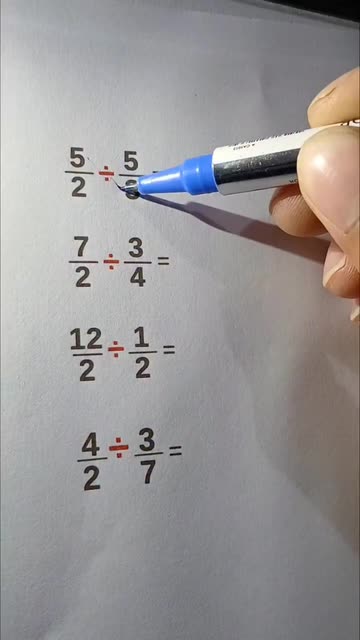 5/2 ÷ 5/3
7/2 ÷ 3/4 =
12/2 ÷ 1/2 =
4/2 ÷ 3/7 =